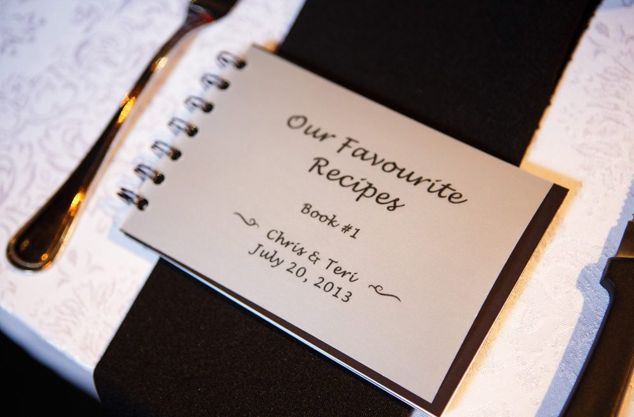 Our Favourite
Recipes
Book #1
Chris & Teri
July 20, 2013